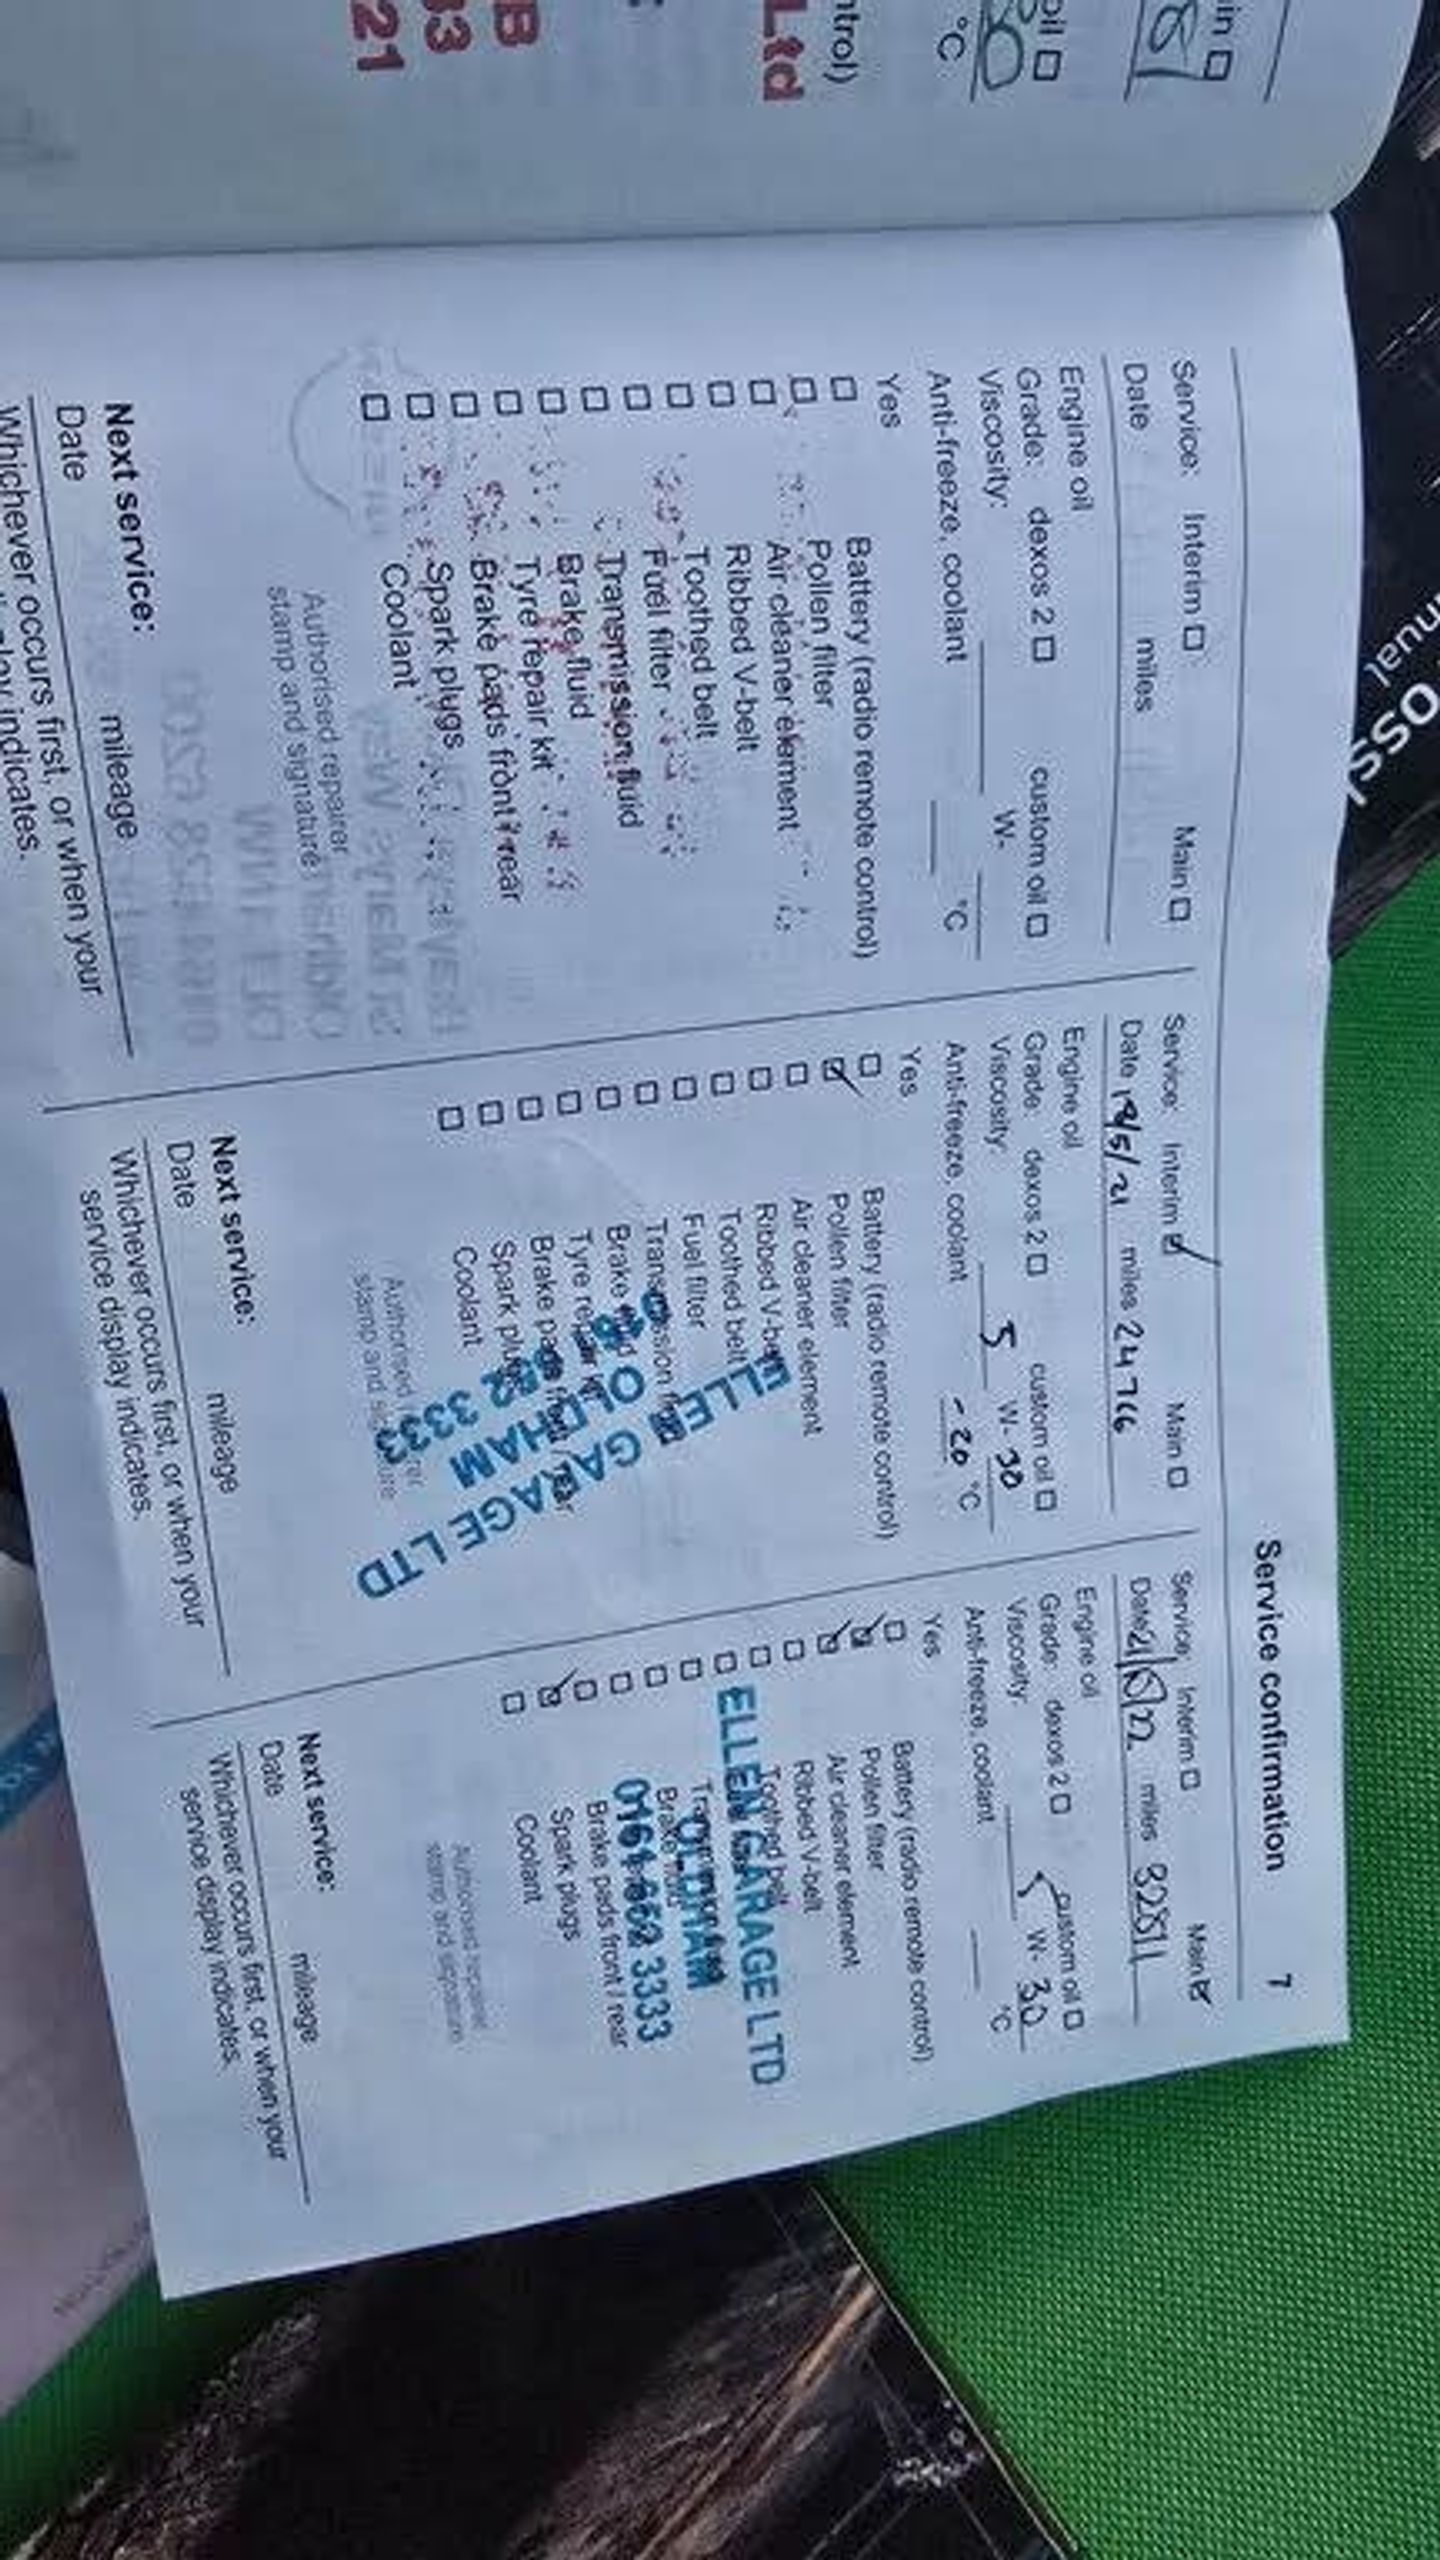 in ☐
oil ☐
°C
ntrol)
Ltd
B
33
21
Service confirmation 7
Service: Interim ☐ Main ☐
Date miles
Engine oil
Grade: dexos 2 ☐ custom oil ☐
Viscosity: W-
Anti-freeze, coolant °C
Yes
☐ Battery (radio remote control)
☐ Pollen filter
☐ Air cleaner element
☐ Ribbed V-belt
☐ Toothed belt
☐ Fuel filter
☐ Transmission fluid
☐ Brake fluid
☐ Tyre repair kit
☐ Brake pads front / rear
☐ Spark plugs
☐ Coolant
Authorised repairer
stamp and signature
Next service:
Date mileage
Whichever occurs first, or when your
service display indicates.
Service: Interim ☑ Main ☐
Date 18/5/21 miles 24766
Engine oil
Grade: dexos 2 ☐ custom oil ☐
Viscosity: 5 W- 30
Anti-freeze, coolant -20 °C
Yes
☐ Battery (radio remote control)
☑ Pollen filter
☐ Air cleaner element
☐ Ribbed V-belt
☐ Toothed belt
☐ Fuel filter
☐ Transmission fluid
☐ Brake fluid
☐ Tyre repair kit
☐ Brake pads front / rear
☐ Spark plugs
☐ Coolant
ELLEN GARAGE LTD
OLDHAM
652 3333
Authorised repairer
stamp and signature
Next service:
Date mileage
Whichever occurs first, or when your
service display indicates.
Service: Interim ☐ Main ☑
Date miles
Engine oil
Grade: dexos 2 ☐ custom oil ☐
Viscosity: 5 W- 30
Anti-freeze, coolant °C
Yes
☐ Battery (radio remote control)
☑ Pollen filter
☑ Air cleaner element
☐ Ribbed V-belt
☐ Toothed belt
ELLEN GARAGE LTD
OLDHAM
0161 652 3333
Brake pads front / rear
☑ Spark plugs
☐ Coolant
Authorised repairer
stamp and signature
Next service:
Date mileage
Whichever occurs first, or when your
service display indicates.